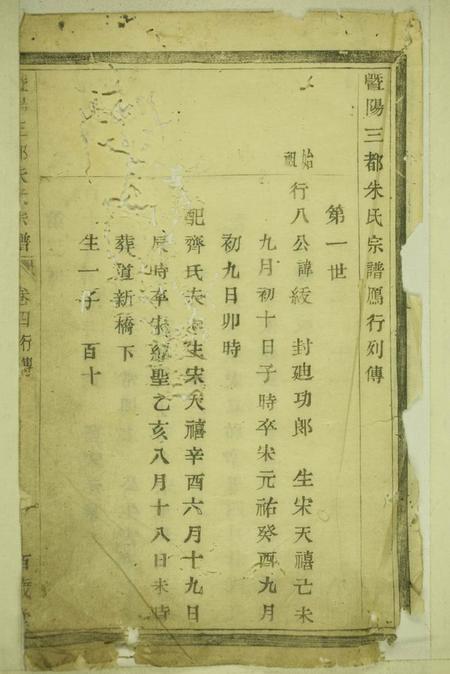 暨陽三都朱氏宗譜鴈行列傳
第一世
始祖 行八公諱綬 封廸功郎 生宋天禧己未
九月初十日子時卒宋元祐癸酉九月
初九日卯時
配齊氏夫人生宋天禧辛酉六月十九日
辰時卒宋紹聖乙亥八月十八日未時
葬道新橋下
生一子 百十
暨陽三都朱氏宗譜 卷四行傳